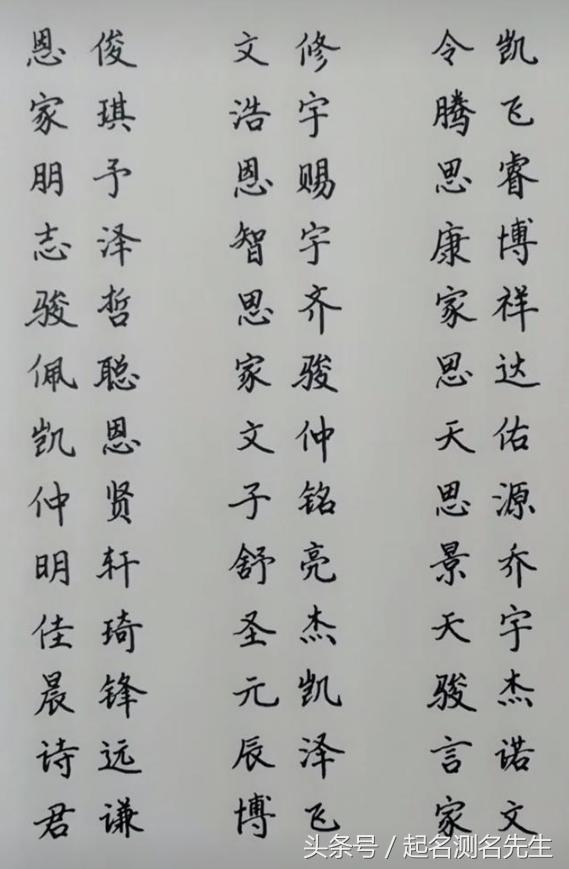 恩俊 文修 令凯
家琪 浩宇 腾飞
朋予 恩赐 思睿
志泽 智宇 康博
骏哲 思齐 家祥
佩聪 家骏 思达
凯恩 文仲 天佑
仲贤 子铭 思源
明轩 舒亮 景乔
佳琦 圣杰 天宇
晨锋 元凯 骏杰
诗远 辰泽 言诺
君谦 博飞 家文
头条号 / 起名测名先生